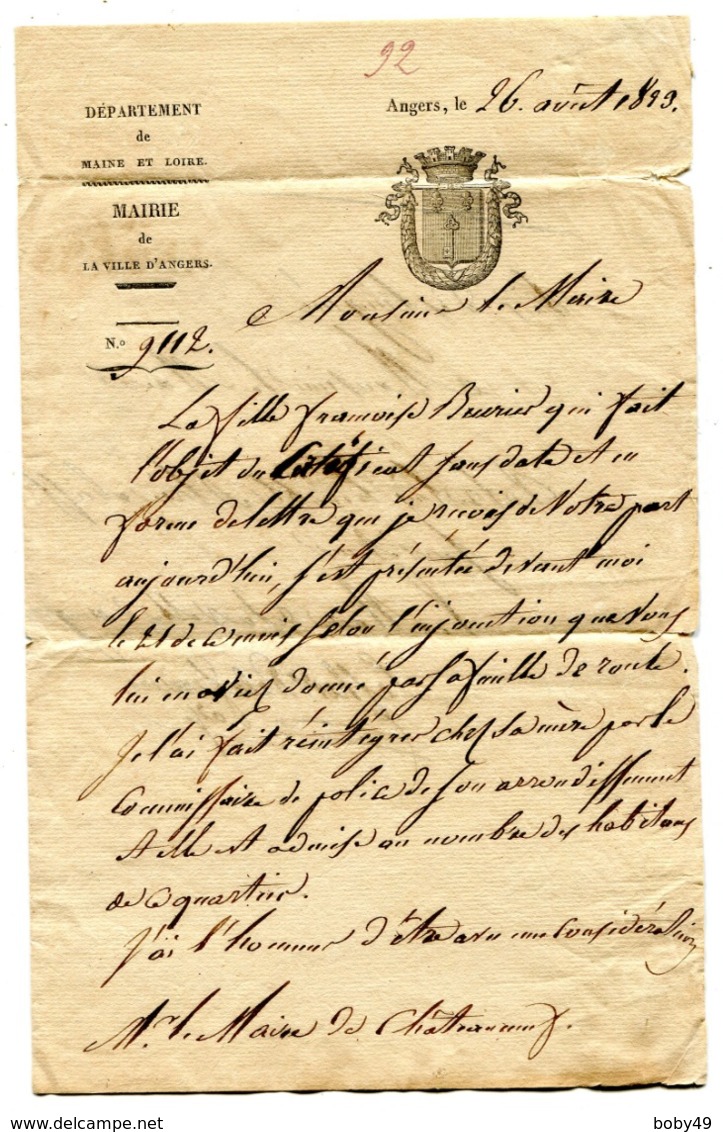 92
DÉPARTEMENT
de
MAINE ET LOIRE.
MAIRIE
de
LA VILLE D'ANGERS.
N.o 9112.
Angers, le 26. août 1823.
Monsieur le Maire
La fille francoise Beurier qui fait
l'objet du Certificat sans date et en
forme de lettre que je reçois de Votre part
aujourd'hui, s'est présentée devant moi
le 21 de ce mois selon l'injonction que Vous
lui en aviez donné par sa feuille de route.
Je l'ai fait réintégrer chez sa mère par le
Commissaire de police de son arrondissement
et elle est admise au nombre des habitans
de ce quartier.
J'ai l'honneur d'être avec une Considération
Mr. le Maire de Châteauneuf.
delcampe.net
boby49